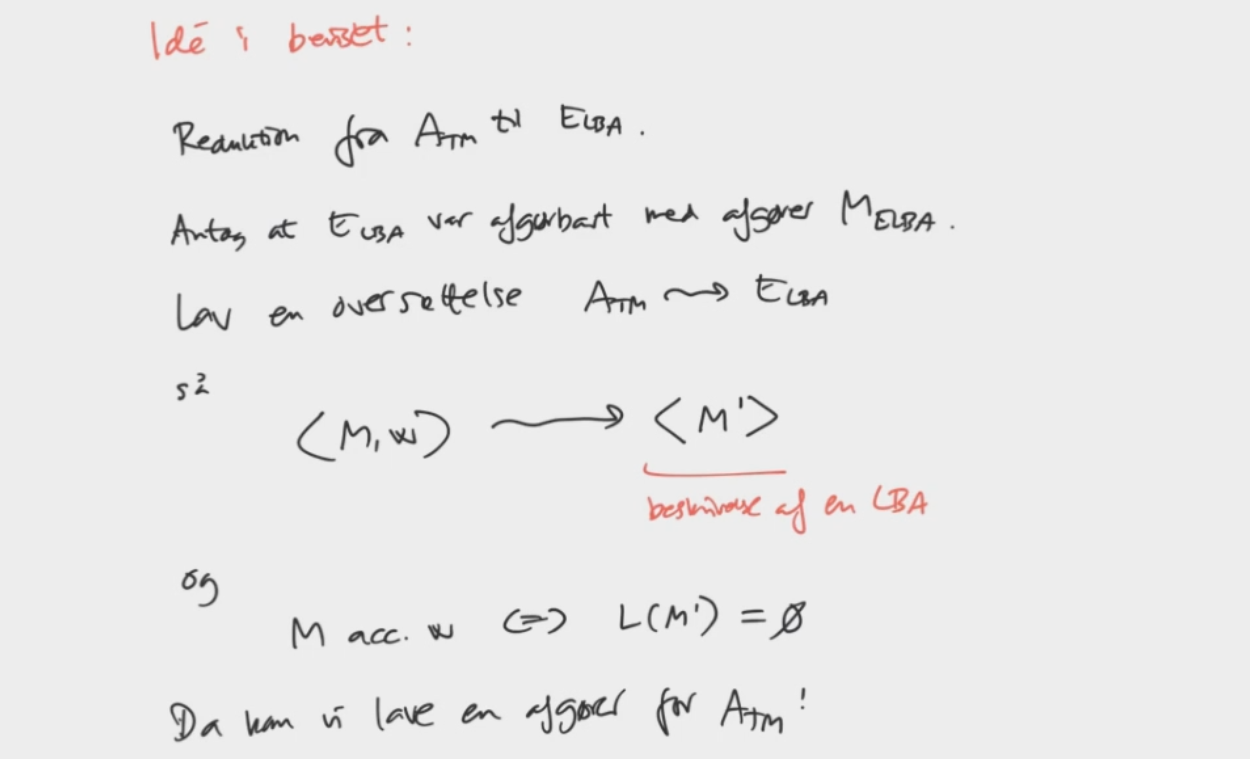 Idé i beviset:
Reduktion fra A_TM til E_LBA.
Antag at E_LBA var afgørbart med afgører M_ELBA.
Lav en oversættelse A_TM ⇝ E_LBA
så
⟨M, w⟩ ⟶ ⟨M'⟩
beskrivelse af en LBA
og
M acc. w ⟺ L(M') = ∅
Da kan vi lave en afgører for A_TM!